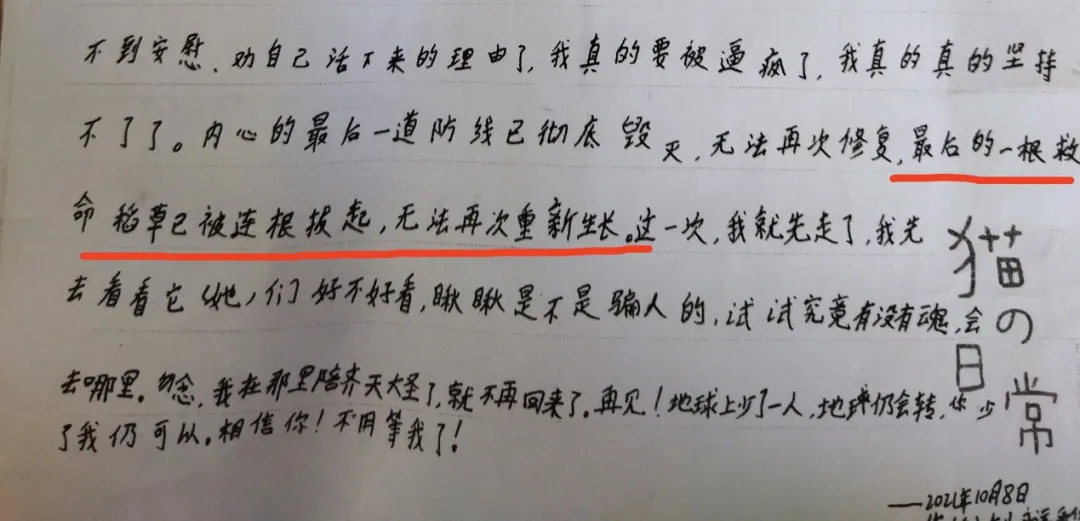 不到安慰、劝自己活下来的理由了,我真的要被逼疯了,我真的真的坚持
不了了。内心的最后一道防线已彻底毁灭,无法再次修复,最后的一根救
命稻草已被连根拔起,无法再次重新生长。这一次,我就先走了,我先
去看看它(她)们好不好看,瞅瞅是不是骗人的,试试究竟有没有魂,会
去哪里。勿念,我在那里陪齐天大圣了,就不再回来了。再见!地球上少了一人,地球仍会转,你少
了我仍可以。相信你!不用等我了!
猫の日常
——2021年10月8日